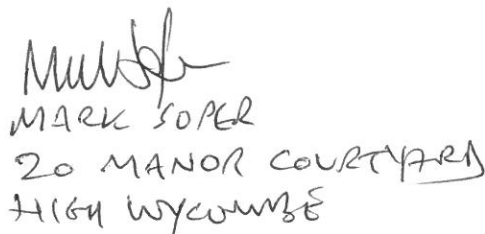 MARK SOPER
20 MANOR COURTYARD
HIGH WYCOMBE